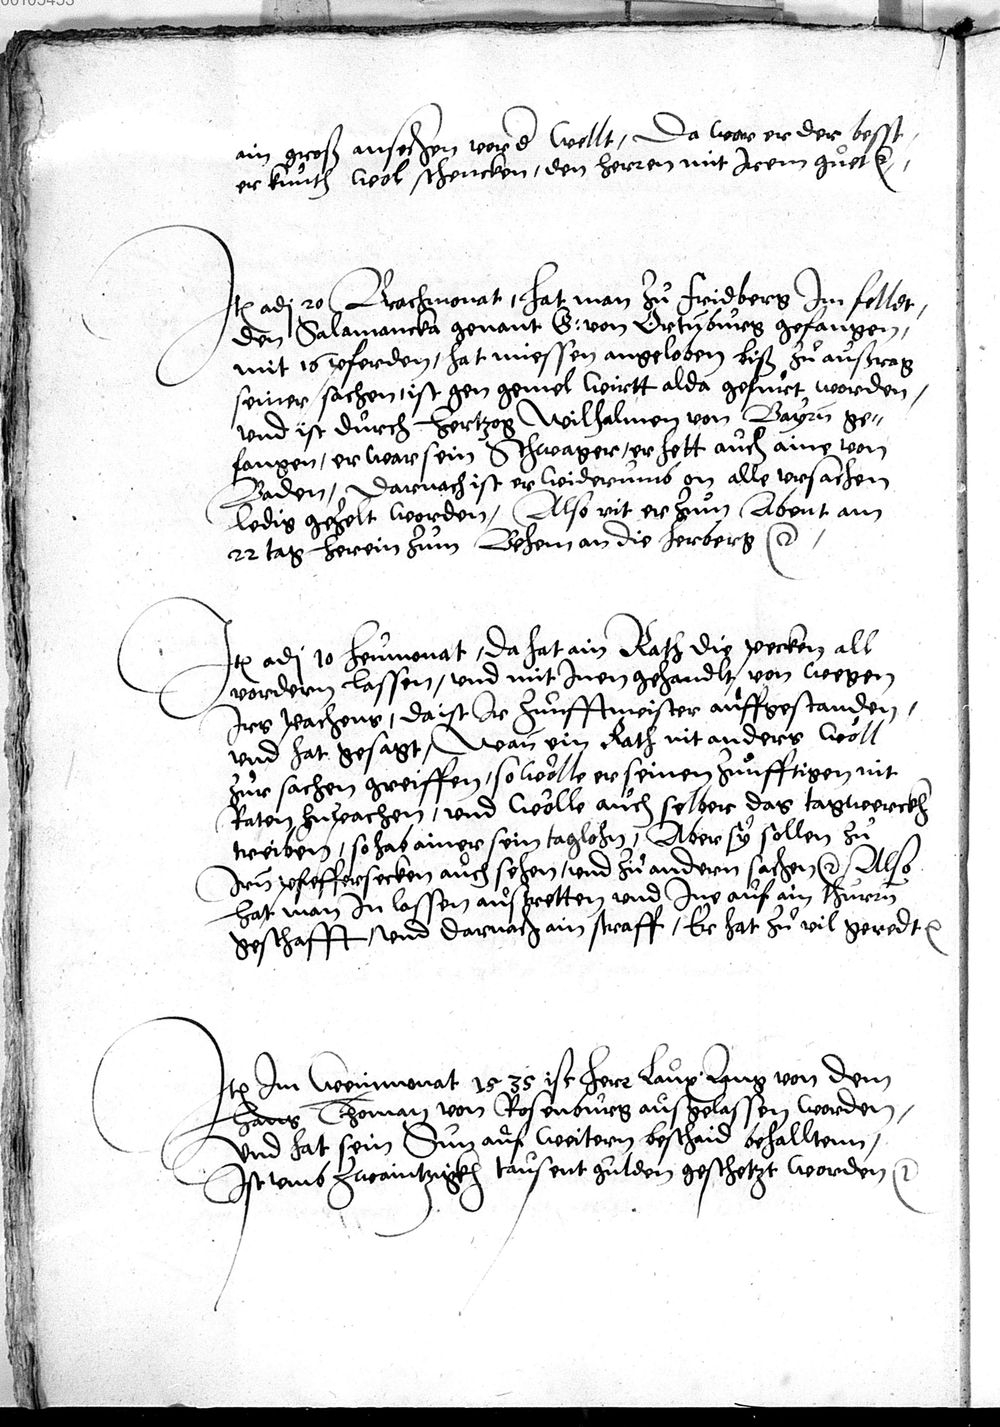 00105453
ain groß ansechen word wellt / Da war er der besst /
er kunth wol schencken / den herren mit Irem guet
Itē adj 20 Brachmonat / hat man zů Fridberg Im felldt /
den Salamancka genant G: von Ortyburg gefangen /
mit 16 pferden / hat miessen angeloben biß zů außtrag
seiner sachen / ist gen gemel wirtt alda gefürt worden /
vnd ist durch hertzog Wilhalmen von Bayrn ge-
fangen / er war sein Schwager / er hett auch aine von
Baden / Darnach ist er widerumb on alle vrsachen
ledig gezelt worden / Also rit er zum Abent am
22 tag herein zum Behem an die herberg /
Itē adj 10 heumonat / da hat ain Rath die pecken all
vordern lassen / vnd mit Inen gehandlt / von wegen
Irs pachens / da ist Ir zunfftmeister auffgestanden /
vnd hat gesagt / Wan ein Rath nit anders wöll
zur sachen greiffen / so wölle er seinen zunfftigen nit
Raten zupachen / vnd wölle auch selber das tagwerckh
treiben / so hab ainer sein taglohn / Aber sy sollen zů
Irn pfeffersecken auch sehen / vnd zu andern sachen / Also
hat man In lassen außtretten vnd Ine auf ain thurn
geschafft / vnd darnach ain straff / Er hat zů vil geredt
Itē Im Weinmonat 1535 ist herr Laux Lang von dem
Hans Thoman von Rosenburg außgelassen worden /
vnd hat sein Sun auf weitern beschaid behalltenn /
Ist vmb zwaintzigkh tausent gulden geschetzt worden